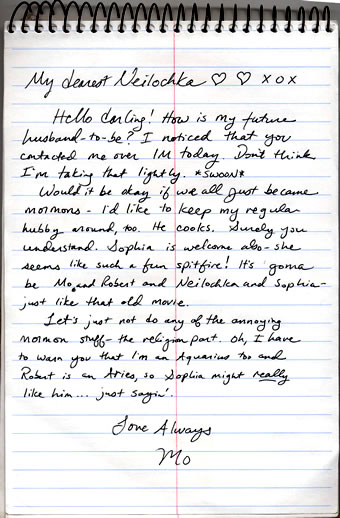 My dearest Neilochka ♡ ♡ xox
Hello darling! How is my future
husband-to-be? I noticed that you
contacted me over IM today. Don't think
I'm taking that lightly. *swoon*
Would it be okay if we all just became
mormons - I'd like to keep my regular
hubby around, too. He cooks. Surely you
understand. Sophia is welcome also - she
seems like such a fun spitfire! It's gonna
be Mo and Robert and Neilochka and Sophia -
just like that old movie.
Let's just not do any of the annoying
mormon stuff - the religion part. Oh, I have
to warn you that I'm an Aquarius too and
Robert is an Aries, so Sophia might really
like him... just sayin'.
Love Always
Mo